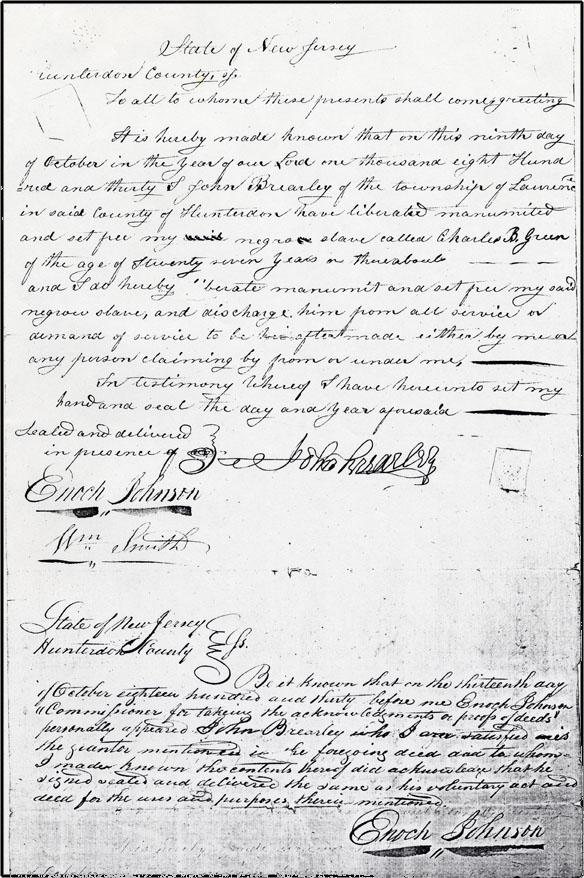 State of New Jersey
Hunterdon County, ss.
To all to whome these presents shall come, greeting
It is hereby made known that on this ninth day
of October in the Year of our Lord one thousand eight Hund
red and thirty I John Brearley of the township of Lawrence
in said County of Hunterdon have liberated manumitted
and set free my negroe slave called Charles B. Green
of the age of Twenty seven Years or thereabouts
and I do hereby liberate manumit and set free my said
negrow slave, and discharge him from all service or
demand of service to be hereafter made either by me or
any person claiming by from or under me,
In testimony Whereof I have hereunto set my
hand and seal the day and Year aforesaid
Sealed and delivered
in presence of
John Brearley
Enoch Johnson
Wm Smith
State of New Jersey
Hunterdon County Ss.
Be it known that on the thirteenth day
of October eighteen hundred and thirty before me Enoch Johnson
"Commissioner for takeing the acknowledgments or proofs of deeds"
personally appeared John Brearley who I am satisfied is
the grantor mentioned in the foregoing deed and to whom
I made known the contents thereof did acknowledge that he
signed sealed and delivered the same as his voluntary act and
deed for the uses and purposes therein mentioned.
Enoch Johnson